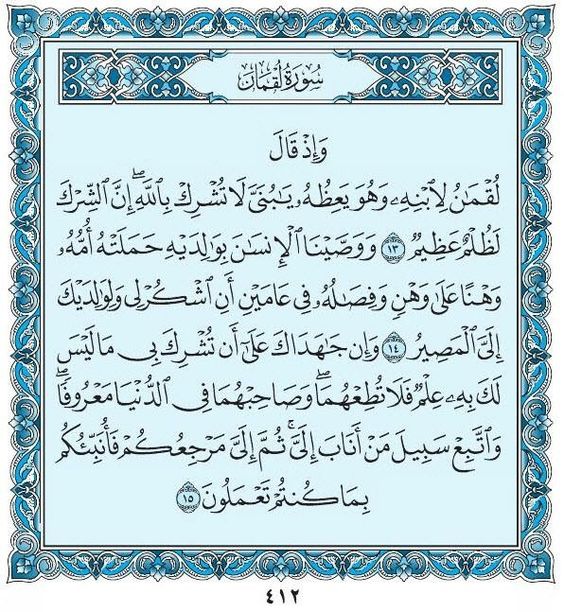 سُورَةُ لُقْمَانَ
وَإِذْ قَالَ
لُقْمَٰنُ لِٱبْنِهِۦ وَهُوَ يَعِظُهُۥ يَٰبُنَىَّ لَا تُشْرِكْ بِٱللَّهِ ۖ إِنَّ ٱلشِّرْكَ
لَظُلْمٌ عَظِيمٌ ١٣ وَوَصَّيْنَا ٱلْإِنسَٰنَ بِوَٰلِدَيْهِ حَمَلَتْهُ أُمُّهُۥ
وَهْنًا عَلَىٰ وَهْنٍ وَفِصَٰلُهُۥ فِى عَامَيْنِ أَنِ ٱشْكُرْ لِى وَلِوَٰلِدَيْكَ
إِلَىَّ ٱلْمَصِيرُ ١٤ وَإِن جَٰهَدَاكَ عَلَىٰٓ أَن تُشْرِكَ بِى مَا لَيْسَ
لَكَ بِهِۦ عِلْمٌ فَلَا تُطِعْهُمَا ۖ وَصَاحِبْهُمَا فِى ٱلدُّنْيَا مَعْرُوفًا ۖ
وَٱتَّبِعْ سَبِيلَ مَنْ أَنَابَ إِلَىَّ ۚ ثُمَّ إِلَىَّ مَرْجِعُكُمْ فَأُنَبِّئُكُم
بِمَا كُنتُمْ تَعْمَلُونَ ١٥
٤١٢